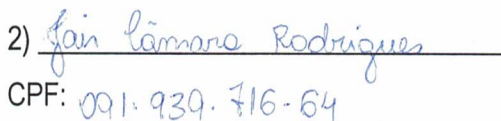 2) Jair Câmara Rodrigues
CPF: 091.939.716-64